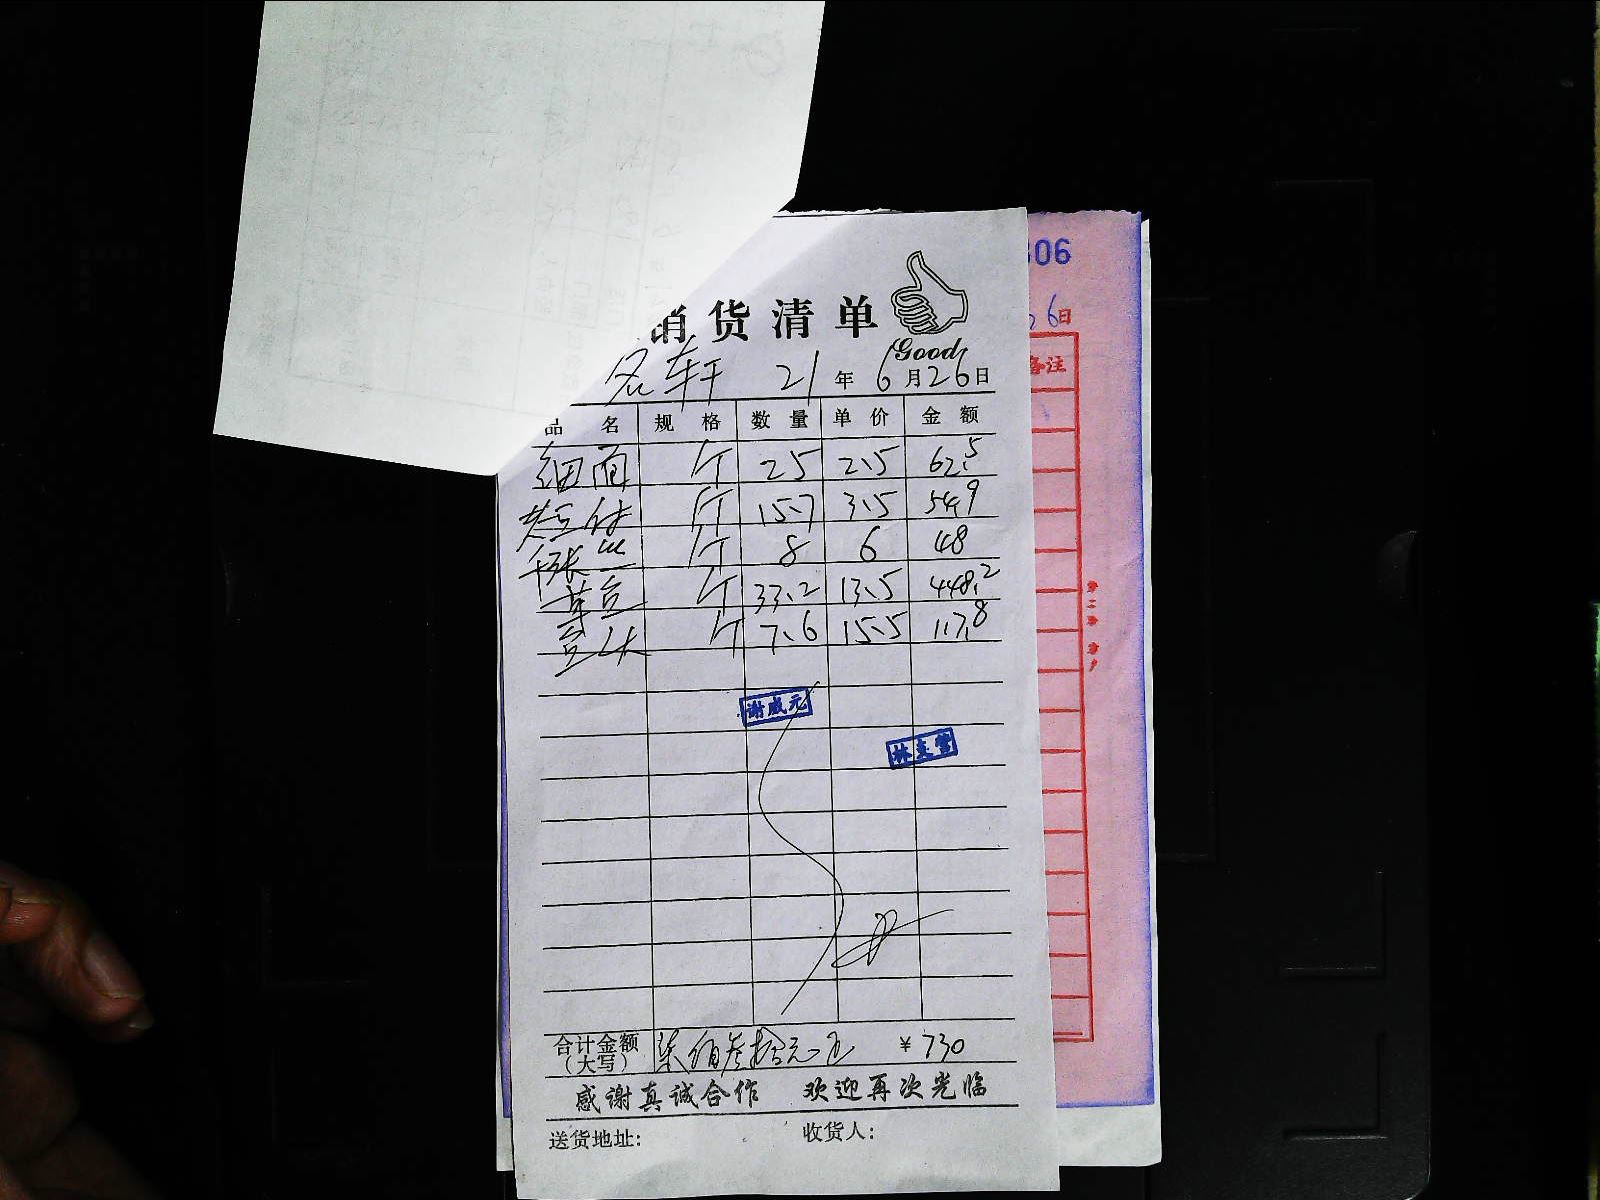 销货清单
Good
306
6日
备注
名轩 21年6月26日
品名 规格 数量 单价 金额
细面 斤 25 2.5 62.5
斤 15.7 3.5 54.9
千张丝 斤 8 6 48
黄豆 斤 33.2 13.5 448.2
斤 7.6 15.5 117.8
谢威元
合计金额(大写) 柒佰叁拾元正 ¥730
感谢真诚合作 欢迎再次光临
送货地址: 收货人: